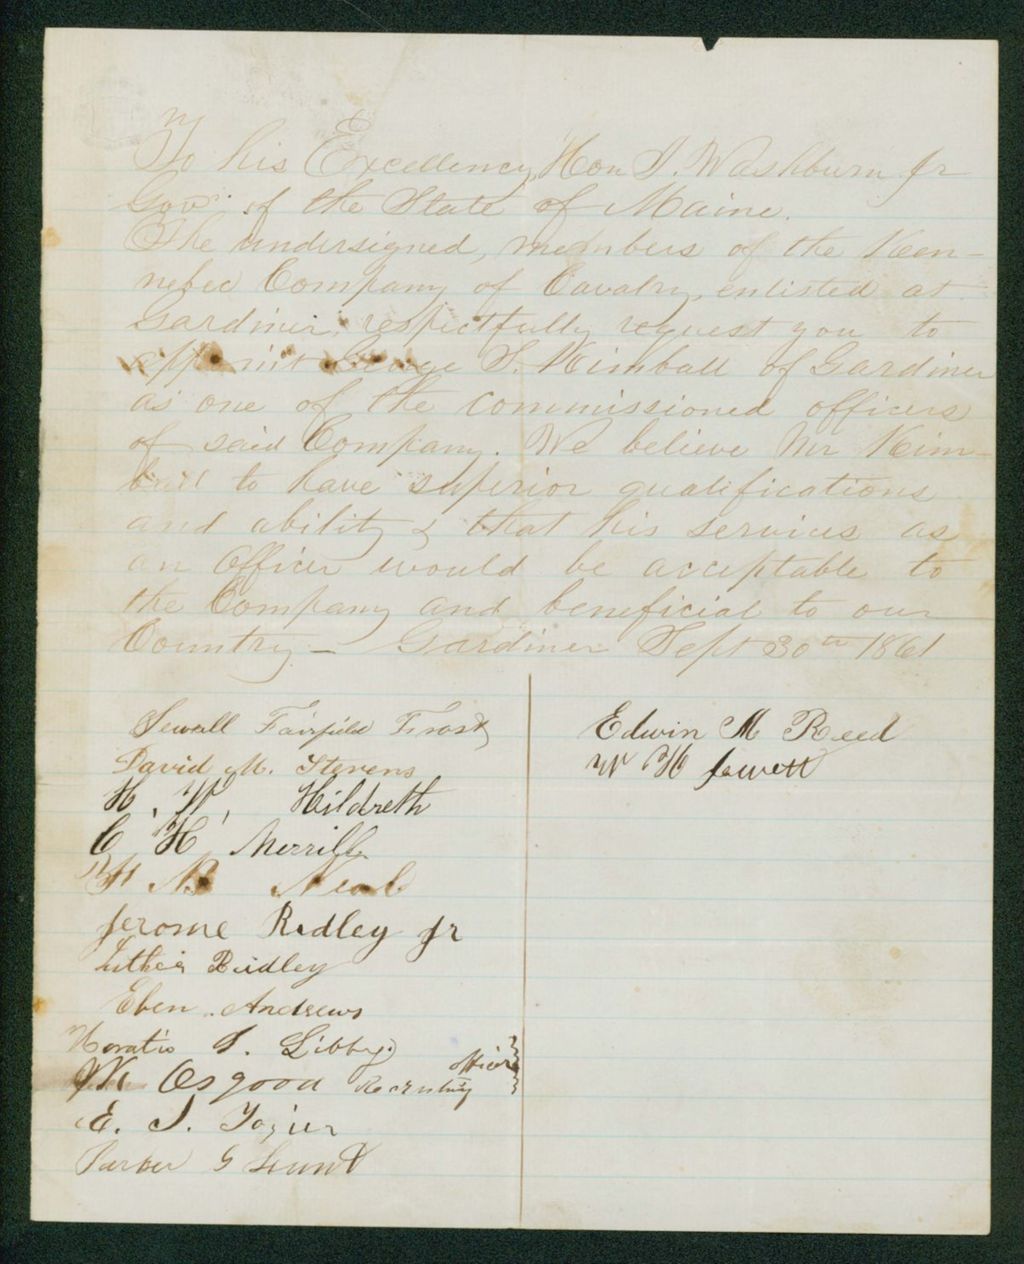 To his Excellency, Hon I. Washburn Jr
Gov. of the State of Maine.
The undersigned, members of the Ken-
nebec Company of Cavalry, enlisted at
Gardiner, respectfully request you to
appoint George S. Kimball of Gardiner
as one of the commissioned officers
of said Company. We believe Mr Kim-
ball to have superior qualifications
and ability & that his services as
an Officer would be acceptable to
the Company and beneficial to our
Country – Gardiner Sept 30th 1861
Sewall Fairfield Frost
David M. Stevens
H. W. Hildreth
C. H. Merrill
N Neal
Jerome Ridley Jr
Luther Ridley
Eben Andrews
Horatio S. Libby
Osgood Recruiting officer
E. J. Tozier
Parker G Lunt
Edwin M Reed
W H Jewett